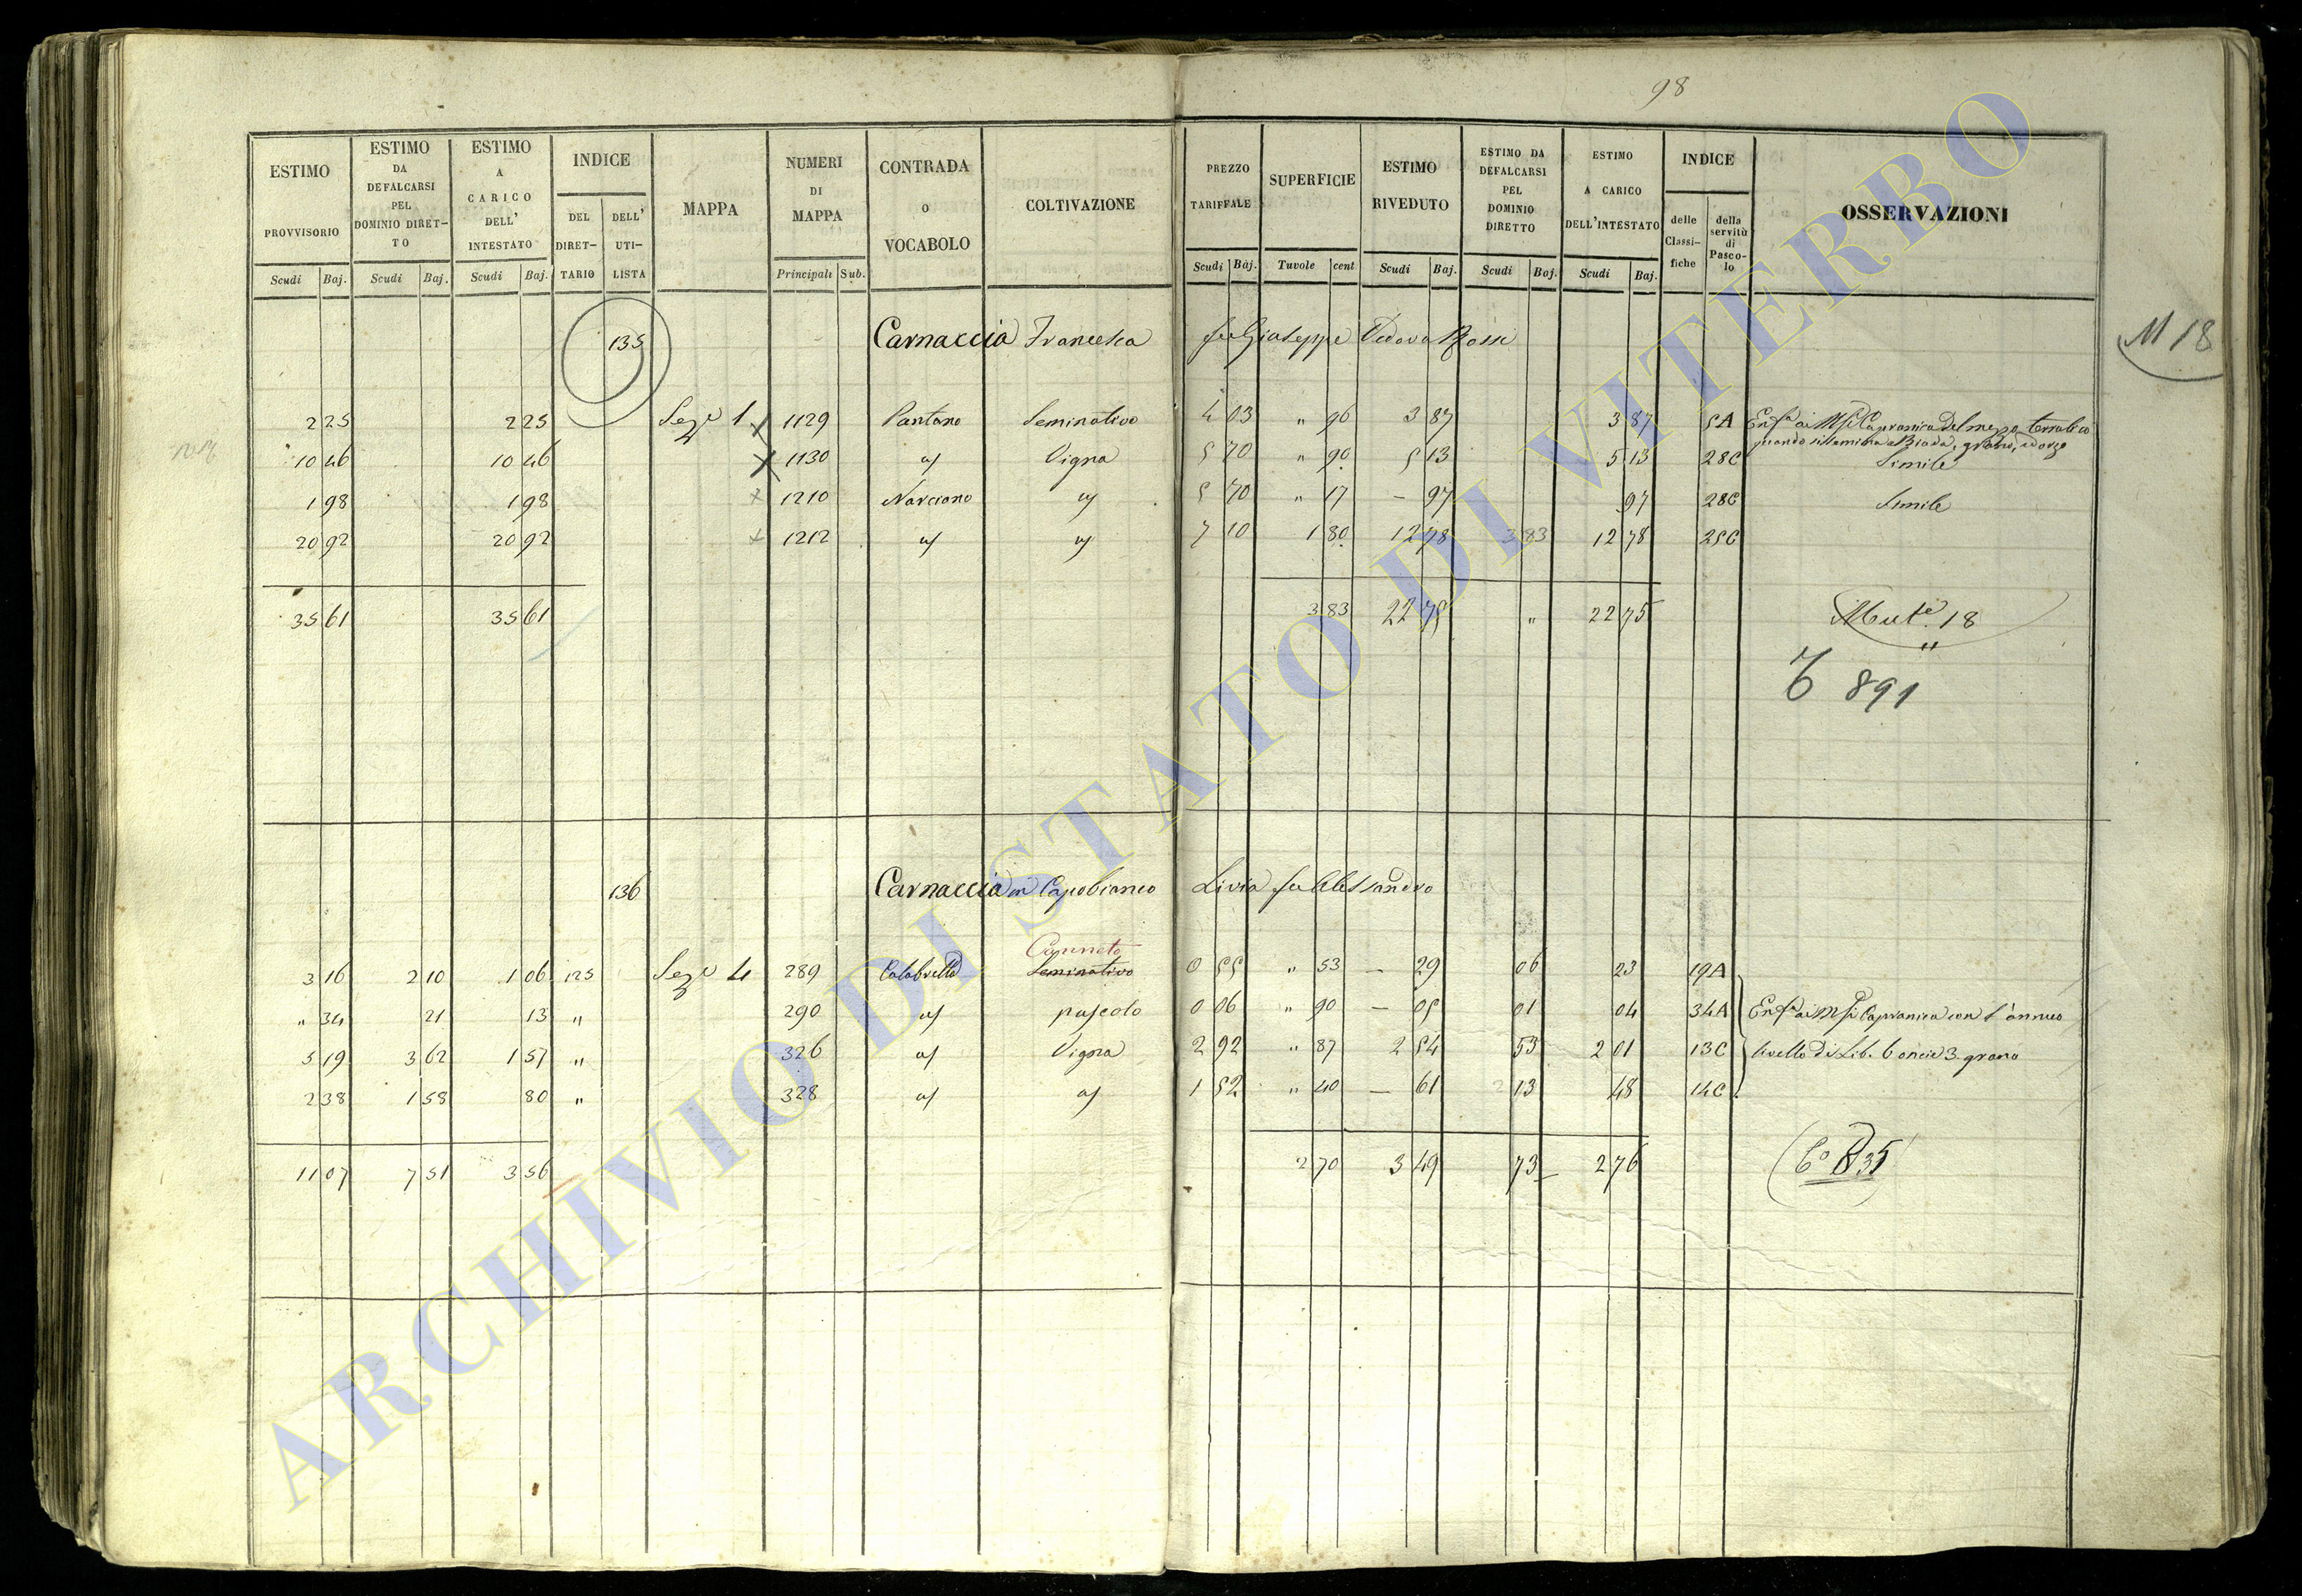 98
ESTIMO PROVVISORIO
ESTIMO DA DEFALCARSI PEL DOMINIO DIRETTO
ESTIMO A CARICO DELL' INTESTATO
INDICE
DEL DIRETTARIO
DELL' UTILISTA
MAPPA
NUMERI DI MAPPA
CONTRADA O VOCABOLO
COLTIVAZIONE
PREZZO TARIFFALE
SUPERFICIE
ESTIMO RIVEDUTO
ESTIMO DA DEFALCARSI PEL DOMINIO DIRETTO
ESTIMO A CARICO DELL'INTESTATO
INDICE
delle Classifiche
della servitù di Pascolo
OSSERVAZIONI
Scudi Baj. Scudi Baj. Scudi Baj. Principali Sub. Scudi Baj. Tavole cent Scudi Baj. Scudi Baj. Scudi Baj.
135 Carnaccia Francesca fu Giuseppe Vedova Rossi
M 18
2 25 2 25 Sez.e 1 1129 Pantano Seminativo 4 03 " 96 3 87 3 87 5A
quando si semina Biada, grano, ed orzo
10 46 10 46 1130 Vigna 5 70 " 90 5 13 5 13 28C Simile
1 98 1 98 1210 Narciano 5 70 " 17 – 97 97 28C Simile
20 92 20 92 1212 7 10 1 80 12 78 3 83 12 78 25C
35 61 35 61 3 83 22 75 " 22 75 Mut.e 18
891
136 Carnaccia in Capobianco Livia fu Alessandro
Canneto
3 16 2 10 1 06 125 Sez.e 4 289 Calabrella Seminativo 0 55 " 53 – 29 06 23 19A
" 34 21 13 " 290 pascolo 0 06 " 90 – 05 01 04 34A con l'annuo
5 19 3 62 1 57 " 326 Vigna 2 92 " 87 2 54 53 2 01 13C livello di Lib. 6 oncie 3 grano
2 38 1 58 80 " 328 1 52 " 40 – 61 13 48 14C
11 07 7 51 3 56 2 70 3 49 73 2 76
ARCHIVIO DI STATO DI VITERBO